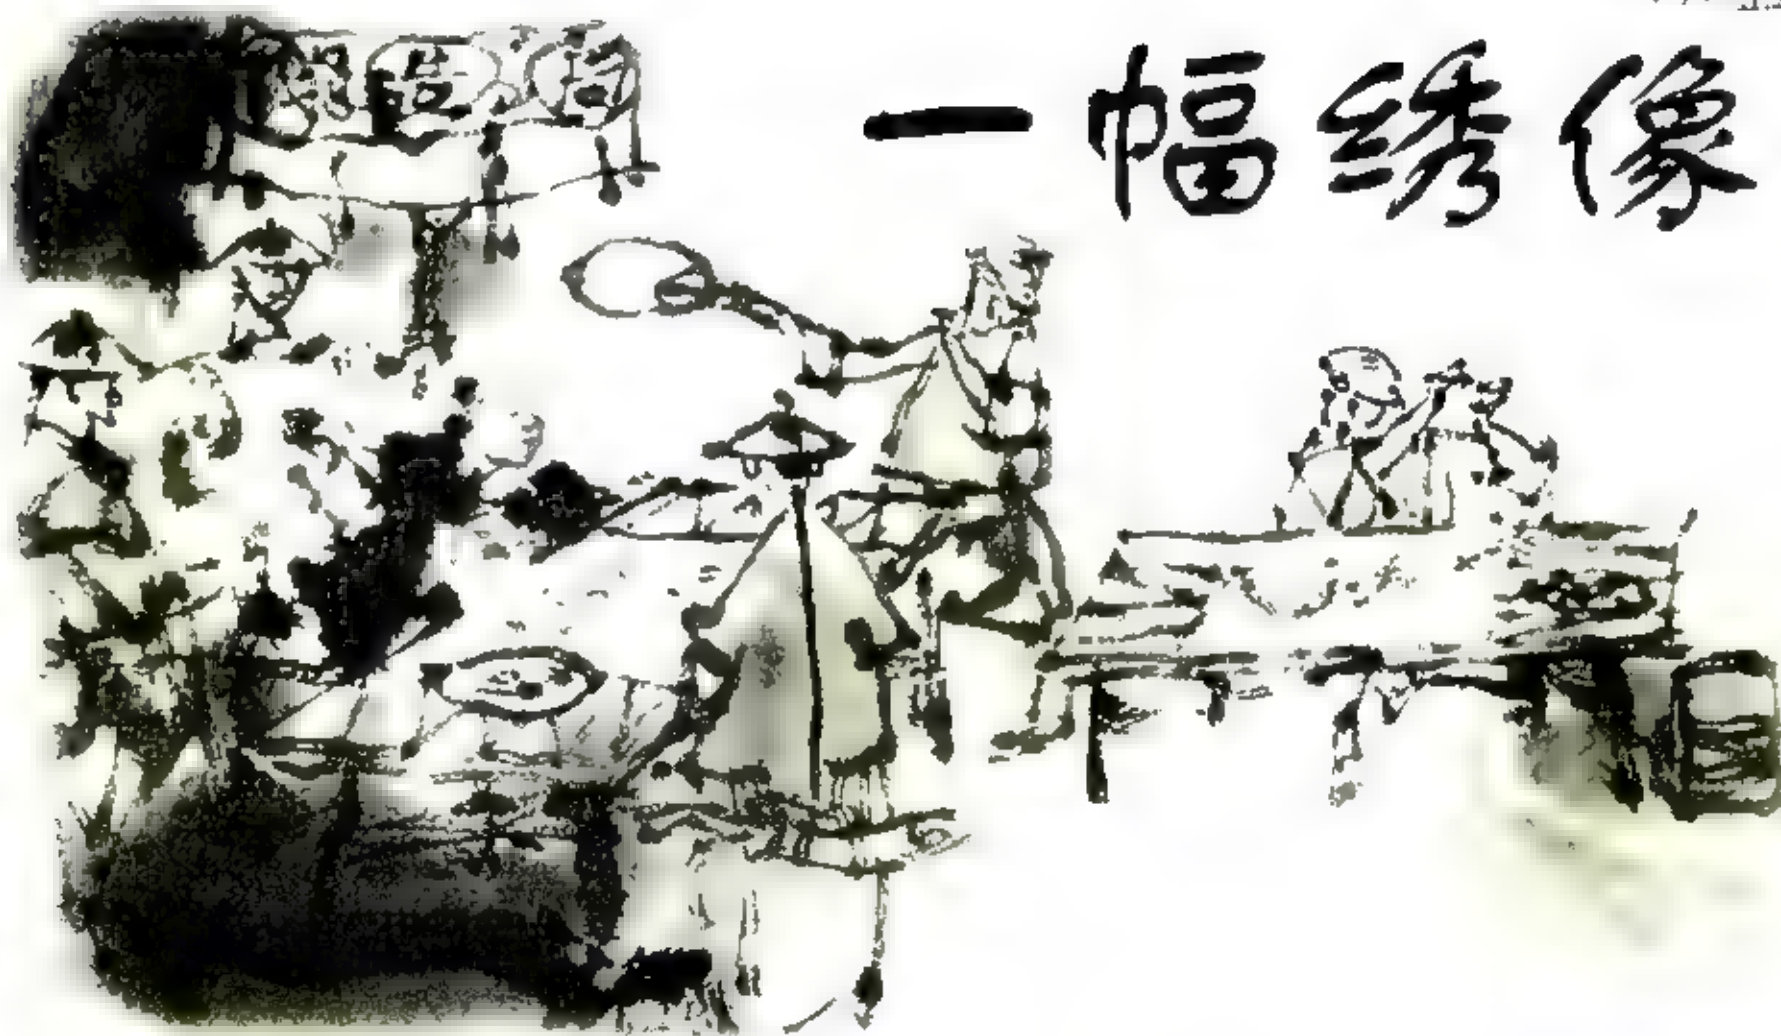 一幅绣像